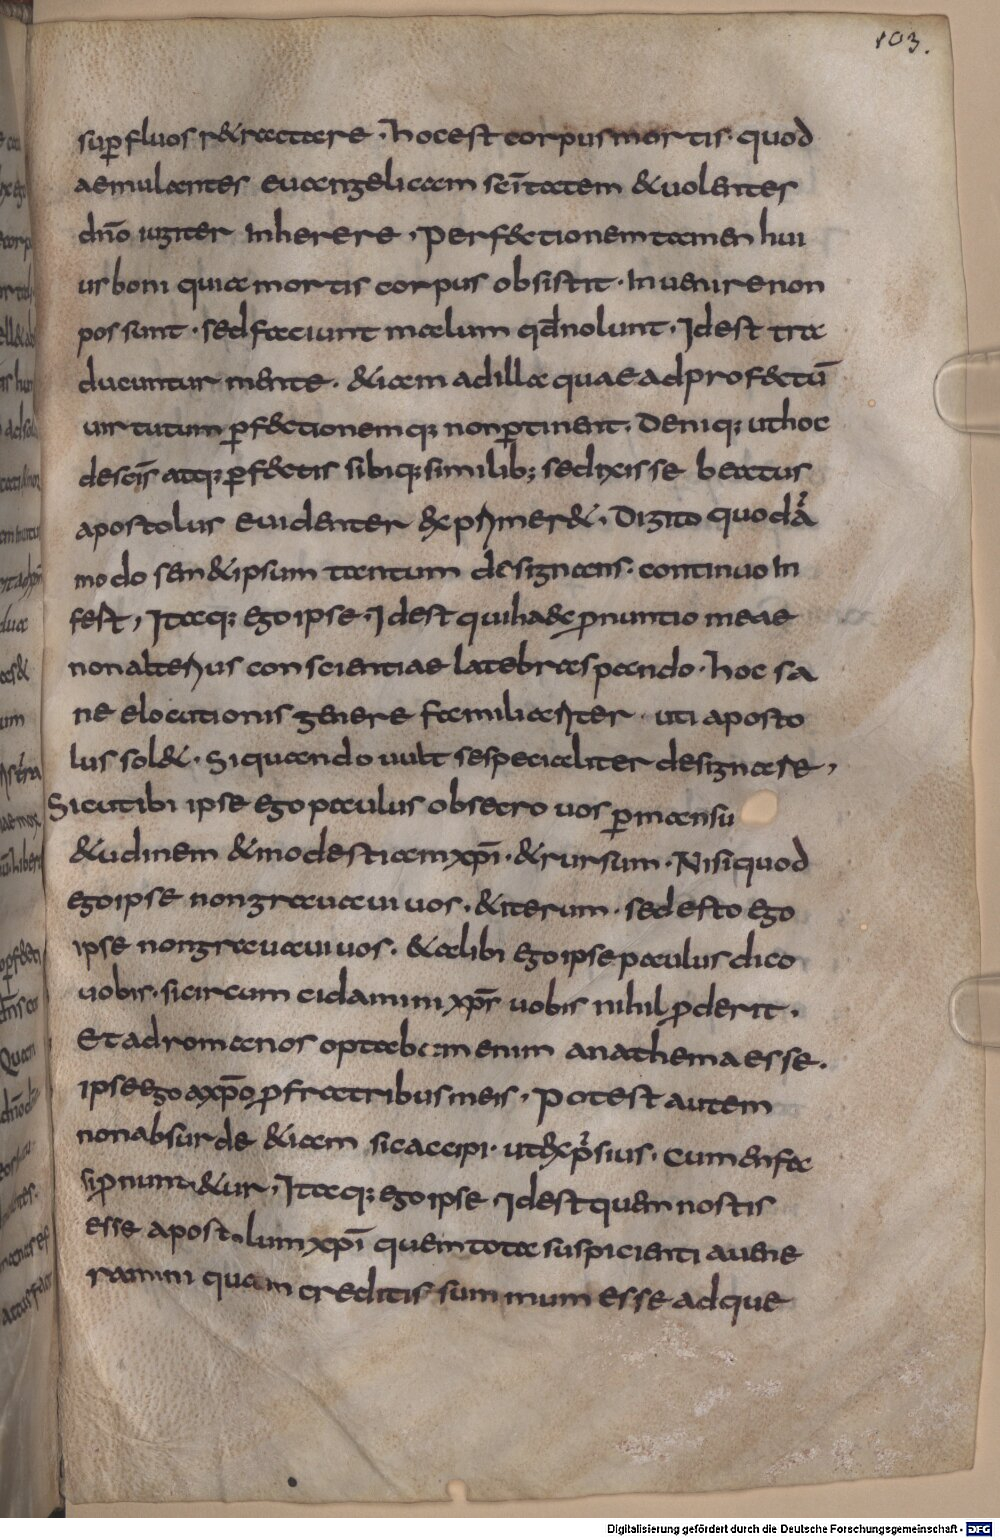 103.
sup̄fluos r&ractare · hocest corpusmortis · quod
aemulantes euangelicam sc̄itatem &uolentes
dn̄o iugiter Inherere · Perf&ctionemtamen hui
us boni quia mortis corpus obsistit · Inuenirenon
possunt · sedfaciunt malum qd̄nolunt · Idest tra
ducuntur mente · &iam adilla quaeadprof&ctū
uirtutum p̄f&ctionemq; nonp̄tinent · Deniq; uthoc
descīs atq; p̄f&ctis sibiq; similib; sedixisse beatus
apostolus euidenter &xprimer& · Digito quodā
modo sem&ipsum tantum designans · continuo In
fest, Itaq; ego ipse · Idest quiha&c p̄nuntio meae
nonalterius conscientiae latebraspando · hoc sa
ne elocutionis genere familiariter · uti aposto
lus sol& · Siquando uult sespecialiter designare,
Sicutibi ipse ego paulus obsecro uos p̄mansu
&udinem &modestiamxp̄i · &rursum · Nisiquod
egoipse nongrauaui uos · &iterum · sedesto ego
ipse nongrauauiuos · &alibi egoipse paulus dico
uobis · sicircumcidamini xp̄s uobis nihil p̄derit ·
Et adromanos optabam enim anathema esse ·
ipseego axp̄o p̄fratribusmeis · Potest autem
nonabsurde &iam sicaccipi · uth&xp̄sius · cumenfa
sip̄num&ur, Itaq; egoipse Idestquem nostis
esse apostolumxp̄i quemtota suspicienti auene
ramini quam creditis summum esse adque
Digitalisierung gefördert durch die Deutsche Forschungsgemeinschaft - DFG